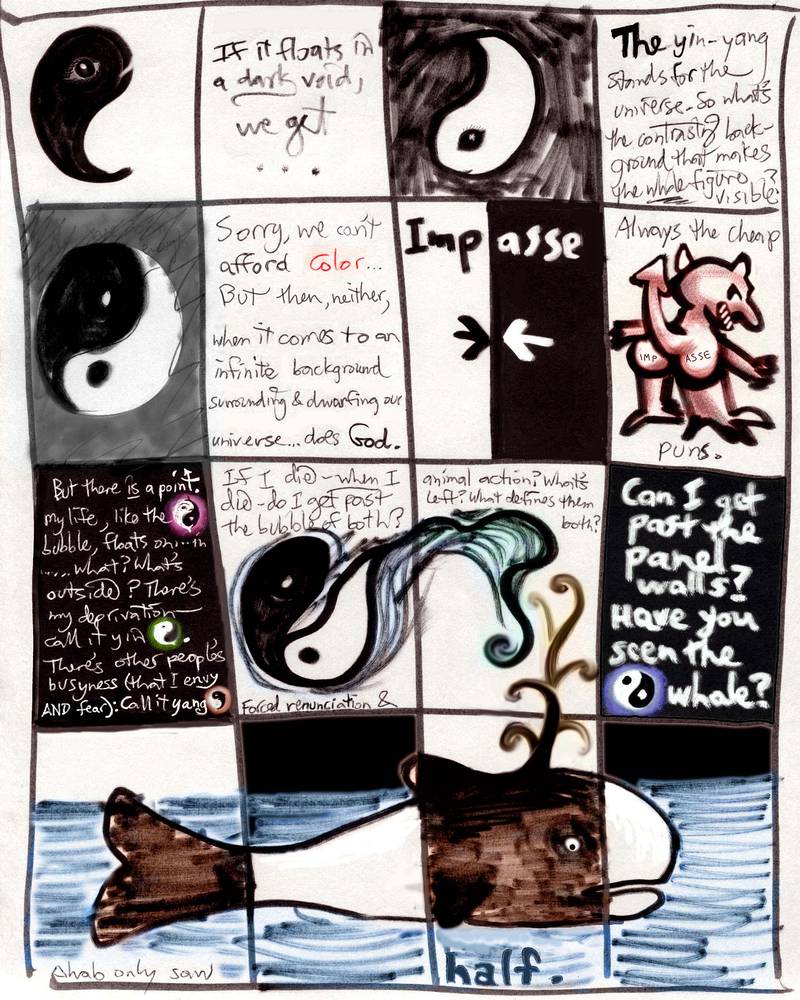 If it floats in
a dark void,
we get
. . .
The yin-yang
stands for the
universe. So what's
the contrasting back-
ground that makes
the whole figure
visible?
Sorry, we can't
afford color...
But then, neither,
when it comes to an
infinite background
surrounding & dwarfing our
universe... does God.
Imp asse
Always the cheap
IMP ASSE
puns.
But there is a point.
my life, like the
bubble, floats on... in
.... what? What's
outside? There's
my deprivation—
call it yin .
There's other people's
busyness (that I envy
AND fear): Call it yang
If I die - when I
die - do I get past
the bubble of both?
Forced renunciation &
animal action? What's
left? What defines them
both?
Can I get
past the
panel
walls?
Have you
seen the
whale?
Ahab only saw
half.